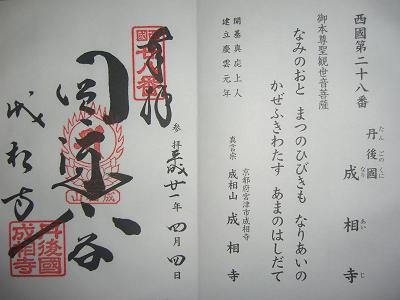 西國第二十八番
丹後國 成相寺
たんごのくに なりあいじ
御本尊聖観世音菩薩
なみのおと まつのひびきも なりあいの
かぜふきわたす あまのはしだて
開基真応上人
建立慶雲元年
京都府宮津市成相寺
真言宗 成相山 成相寺
奉拝
参拝 平成廿一年 四月 四日
成相寺
成相山
丹後國
成相寺